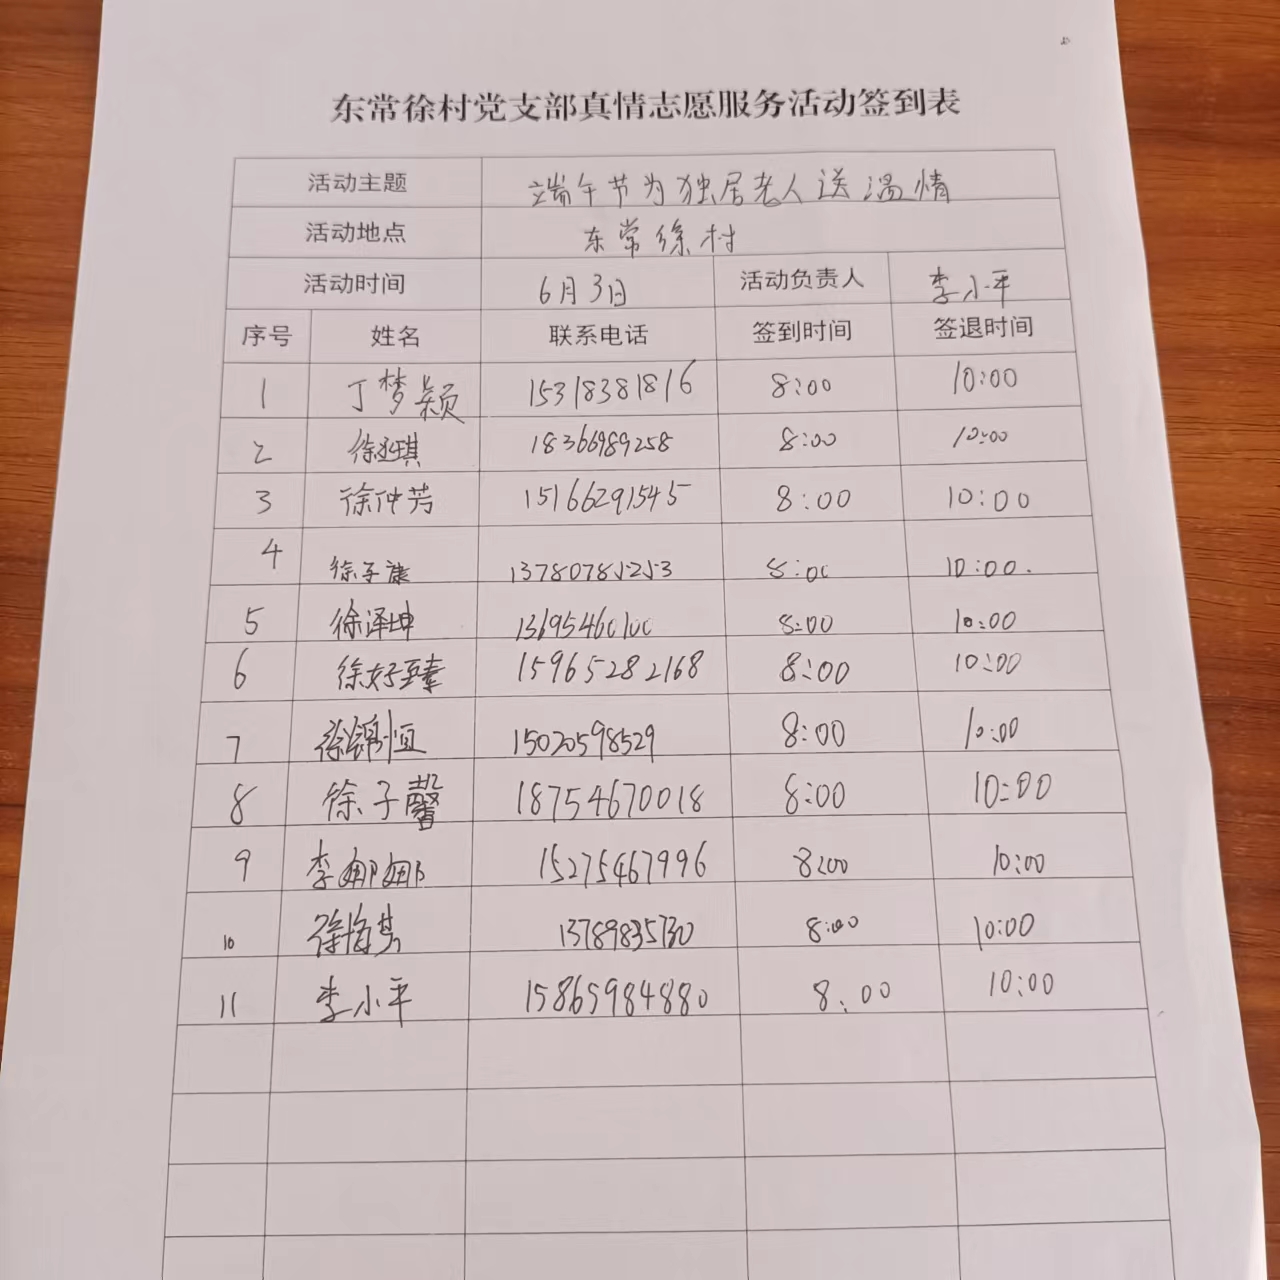 东常徐村党支部真情志愿服务活动签到表
活动主题 端午节为独居老人送温情
活动地点 东常徐村
活动时间 6月3日 活动负责人 李小平
序号 姓名 联系电话 签到时间 签退时间
1 丁梦颖 15318381816 8:00 10:00
2 徐延琪 18366989258 8:00 10:00
3 徐仲芳 15166291545 8:00 10:00
4 徐子康 13780785253 8:00 10:00.
5 徐泽坤 13695460100 8:00 10:00
6 徐好臻 15965282168 8:00 10:00
7 徐锦恒 15020598529 8:00 10:00
8 徐子馨 18754670018 8:00 10:00
9 李娜娜 15275467996 8:00 10:00
10 徐梅 13789835730 8:00 10:00
11 李小平 15865984880 8:00 10:00